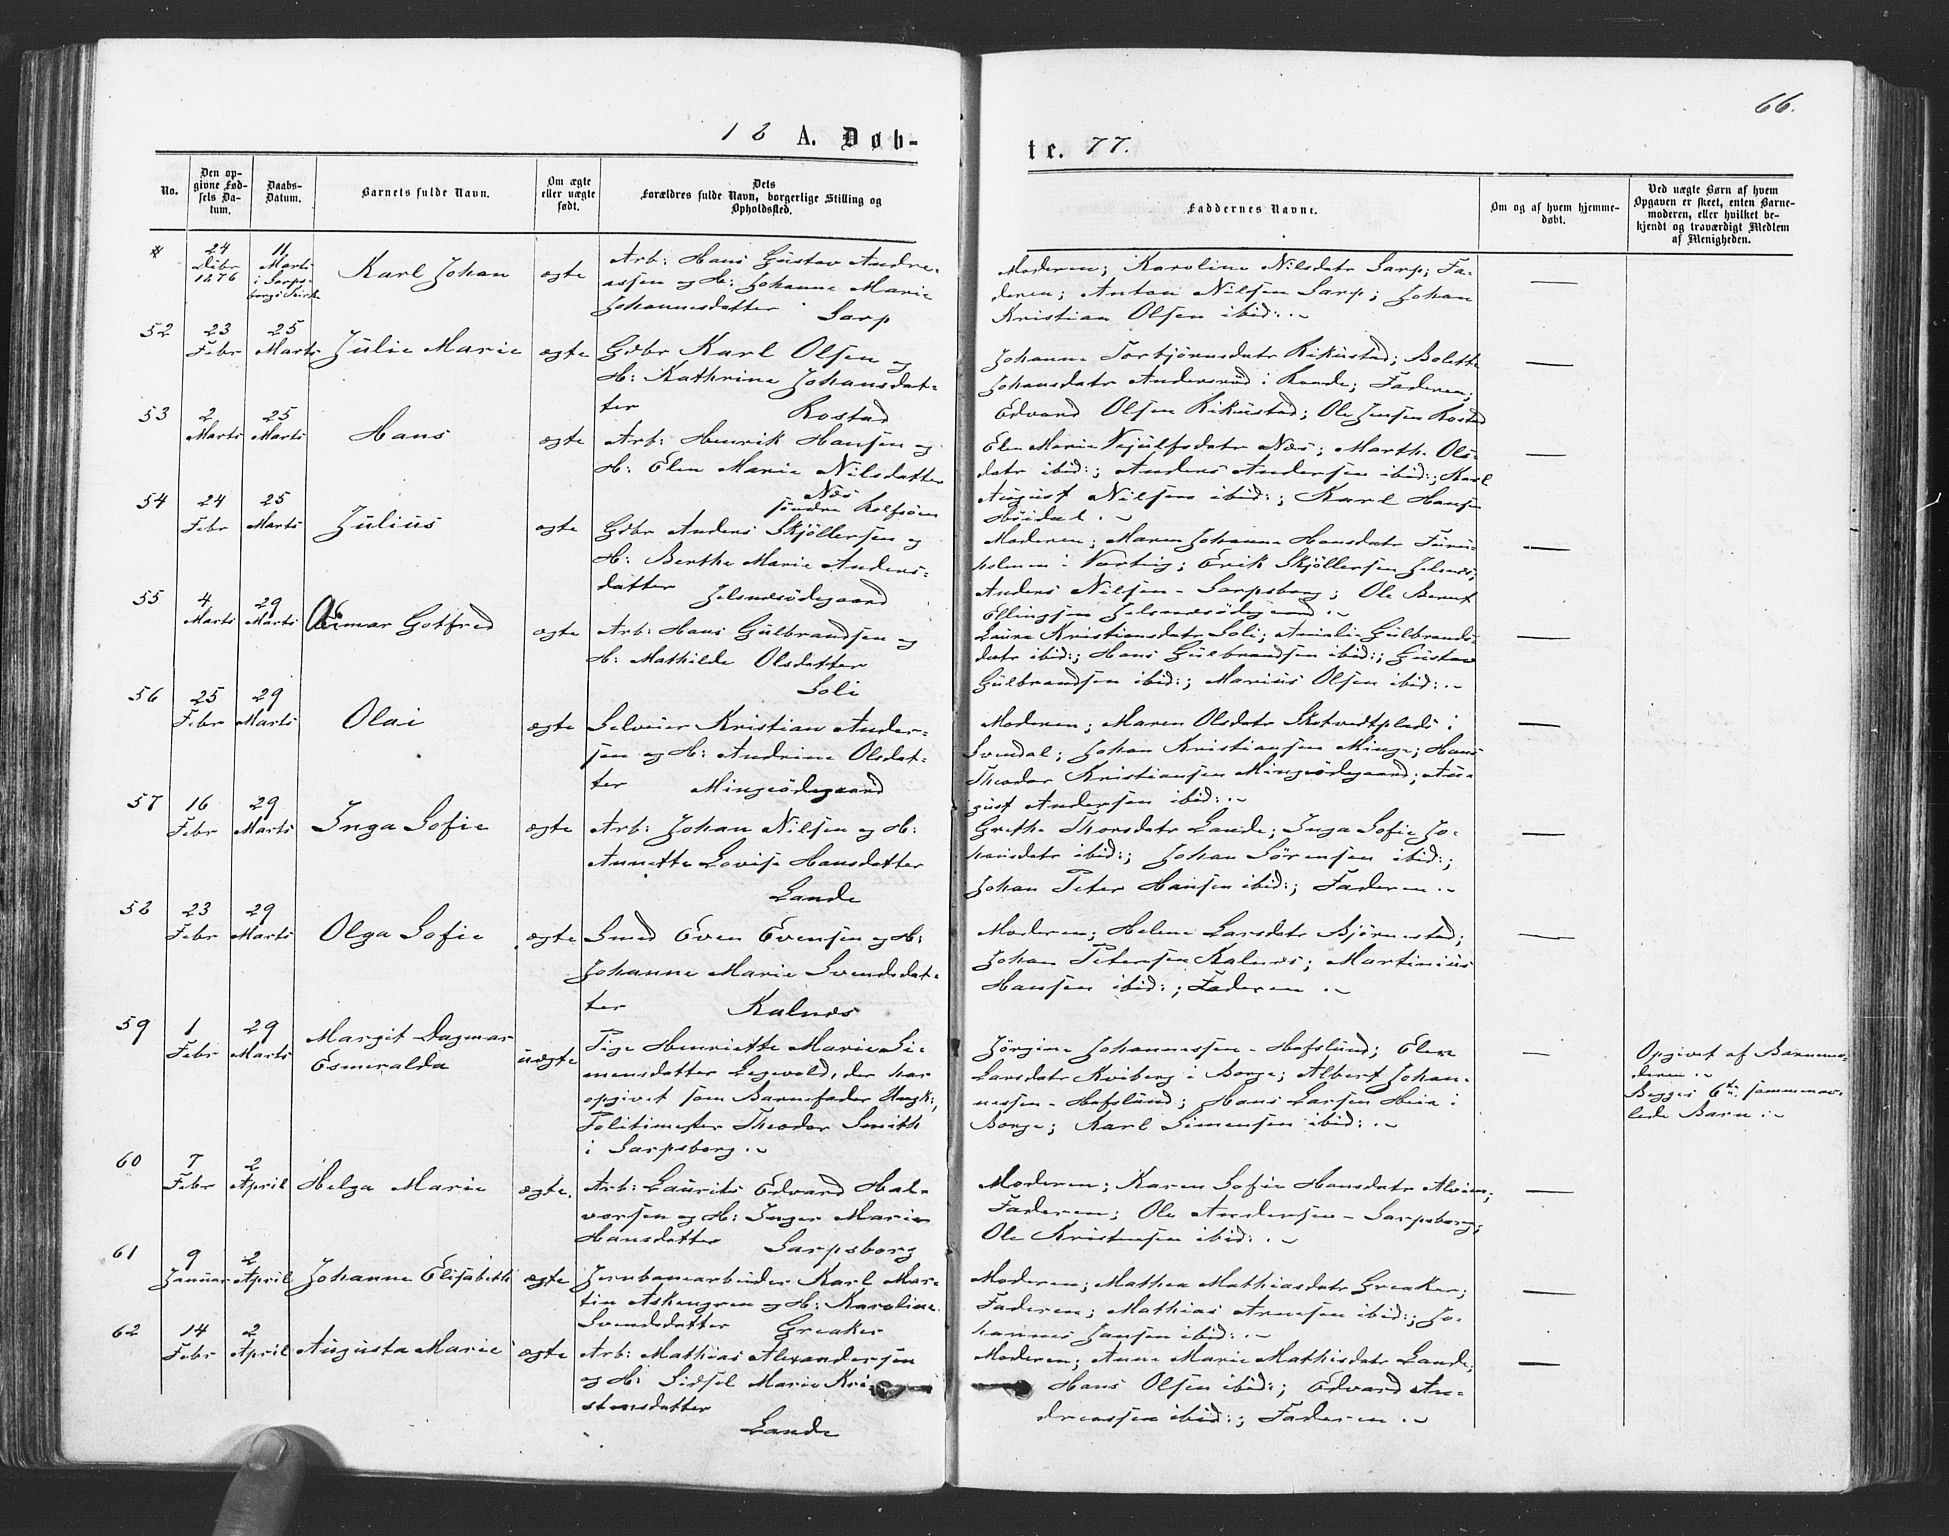 66.
18 A. Døb-
te. 77.
No.
Den op-
givne Fød-
sels Da-
tum.
Daabs-
Datum.
Barnets fulde Navn.
Om ægte
eller uægte
født.
Dets
Forældres fulde Navn, borgerlige Stilling og
Opholdssted.
Faddernes Navne.
Om og af hvem hjemme-
døbt.
Ved uægte Børn af hvem
Opgaven er skeet, enten Barne-
moderen, eller hvilket be-
kjendt og troværdigt Medlem
af Menigheden.
24
Dcbr
1876
11
Marts
i Sarps-
borgs Kirke
Karl Johan
ægte
Arb: Hans Gustav Andre-
assen og H: Johanne Marie
Johannesdatter
Sarp
Moderen; Karoline Nilsdatr Sarp; Fa-
deren; Anton Nilsen Sarp; Johan
Kristian Olsen ibid:
52
23
Febr
25
Marts
Julie Marie
ægte
Gdbr Karl Olsen og
H: Kathrine Johansdat-
ter Rostad
Johanne Torbjørnsdatr Rikustad; Bolette
Johansdatr Andersrød i Raade; Faderen;
Edvard Olsen Rikustad; Ole Jensen Rostad
53
2
Marts
25
Marts
Hans
ægte
Arb: Henrik Hansen og
H: Elen Marie Nilsdatter
Næs
søndre Rolfsøen
Elen Marie Vejulfsdatr Næs; Marthe Ols-
datr ibid:; Anders Andersen ibid:; Karl
August Nilsen ibid:; Karl Hansen
Høidal
54
24
Febr
25
Marts
Julius
ægte
Gdbr Anders Skjöllersen og
H: Berthe Marie Anders-
datter Jelsnesödegaard
Moderen; Maren Johanne Hansdatr Furu-
holmen i Varteig; Erik Skjöllersen Jelsnes;
Anders Nilsen - Sarpsborg; Ole Bernt
Ellingsen Jelsnesödegaard
55
4
Marts
29
Marts
Gotfred
ægte
Arb: Hans Gulbrandsen og
H: Mathilde Olsdatter
Soli
Laura Kristiansdatr Soli; Amalie Gulbrands-
datr ibid:; Hans Gulbrandsen ibid:; Gustav
Gulbrandsen ibid:; Marius Olsen ibid:
56
25
Febr
29
Marts
Olai
ægte
Selveier Kristian Ander-
sen og H: Andrine Olsdat-
ter Mingeödegaard
Moderen; Maren Olsdatr Skotvedtplads i
Svendal; Johan Kristiansen Minge; Hans
Theodor Kristiansen Mingeödegaard; Au-
gust Andersen ibid:
57
16
Febr
29
Marts
Inga Sofie
ægte
Arb: Johan Nilsen og H:
Annette Lovise Hansdatter
Lande
Grethe Thorsdatr Lande; Inga Sofie Jo-
hansdatr ibid:; Johan Sörensen ibid:;
Johan Peter Hansen ibid:; Faderen
58
23
Febr
29
Marts
Olga Sofie
ægte
Smed Even Evensen og H:
Johanne Marie Svendsdat-
ter Kalnæs
Moderen; Helene Larsdatr Bjørnestad;
Johan Petersen Kalnæs; Martinius
Hansen ibid:; Faderen
59
1
Febr
29
Marts
Margit Dagmar
Esmeralda
uægte
Pige Henriette Marie Si-
mensdatter Legevold, der har
opgivet som Barnefader Ungk:
Politimester Theodor Smith
i Sarpsborg
Jörgine Johannessen - Hafslund; Elen
Larsdatr Kviberg i Borge; Albert Johan-
nessen - Hafslund; Hans Larsen Heia i
Borge; Karl Simensen ibid:
Opgivet af Barnemo-
deren
Begges 6te sammenav-
lede Barn
60
7
Febr
2
April
Helga Marie
ægte.
Arb: Laurits Edvard Hal-
vorsen og H: Inger Marie
Hansdatter Sarpsborg
Moderen; Karen Sofie Hansdatr Alvim;
Faderen; Ole Andersen - Sarpsborg;
Ole Kristensen ibid:
61
9
Januar
2
April
Johanne Elisabeth
ægte
Jernbanearbeider Karl Mar-
tin Askengren og H: Karoline
Svendsdatter Greaker
Moderen; Mathea Mathiasdatr Greaker;
Faderen; Mathias Arnesen ibid:; Jo-
hannes Jansen ibid:
62
14
Febr
2
April
Augusta Marie
ægte
Arb: Mathias Alexandersen
og H: Sidsel Marie Kri-
stensdatter
Lande
Moderen; Anne Marie Mathisdatr Lande;
Hans Olsen ibid:; Edvard An-
dreassen ibid:; Faderen